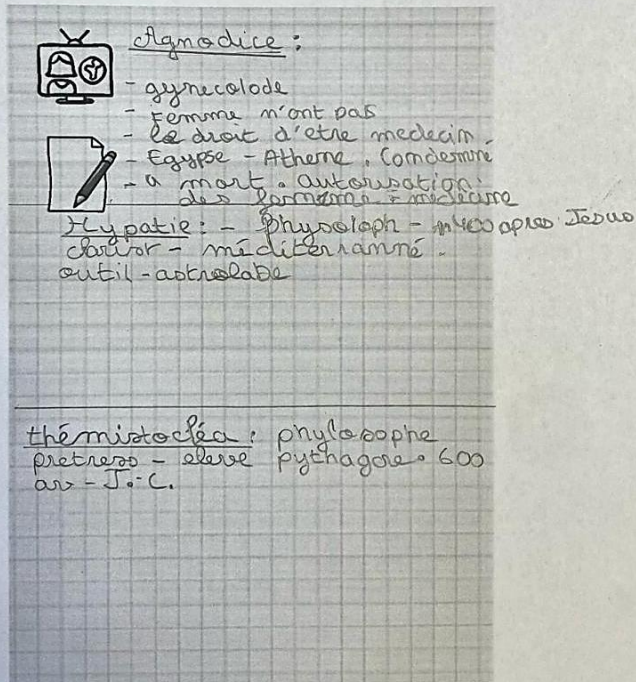 Agnodice :
- gynecolode
- Femme n'ont pas
- le droit d'etre medecin.
- Egypse - Athene. Comdemné
- a mort. autorisation
des femmme = medecine
Hypatie : - Physoloph - 400 apres Jesus
- méditerranné.
outil - astrolabe
thémistocléa : phylosophe
pretress - eleve pythagore. 600
av - J.-C.